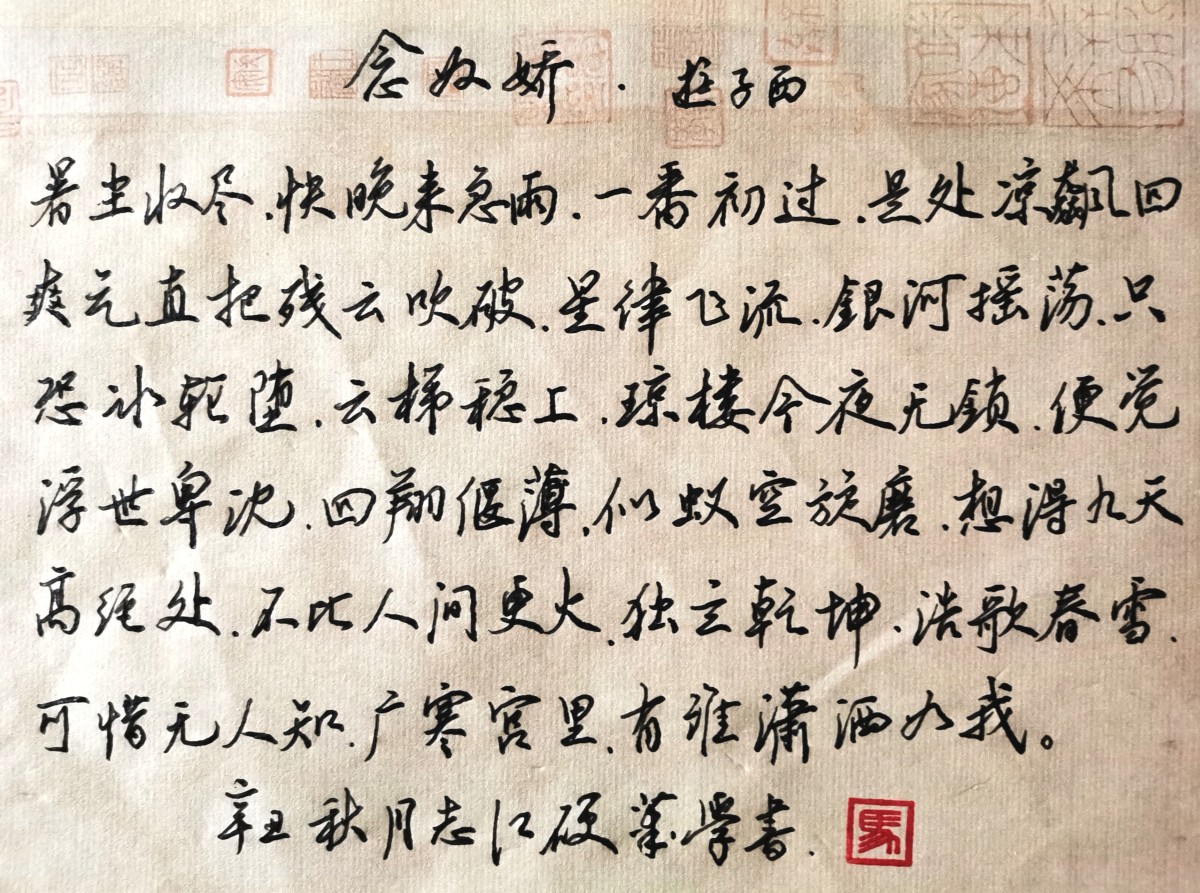 念奴娇·游子西
暑尘收尽、快晚来急雨、一番初过、是处凉飙回
爽气直把残云吹破、星律飞流、銀河摇荡、只
恐冰轮堕、云梯稳上、琼楼今夜无鎖、便觉
浮世卑沈、回翔偃薄、似蚁空旋磨、想得九天
高绝处、不比人间更火、独立乾坤、浩歌春雪、
可惜无人知、广寒宫里、有谁潇洒如我。
辛丑秋月志江硬筆學书、
马